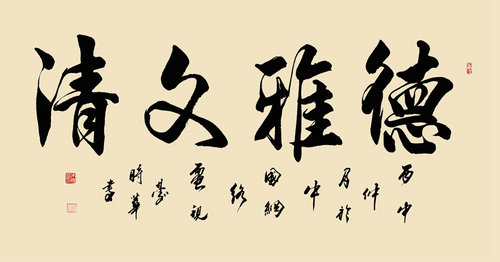 德雅文清
丙申
仲
月於
中
國網
絡
電視
臺
時華
書